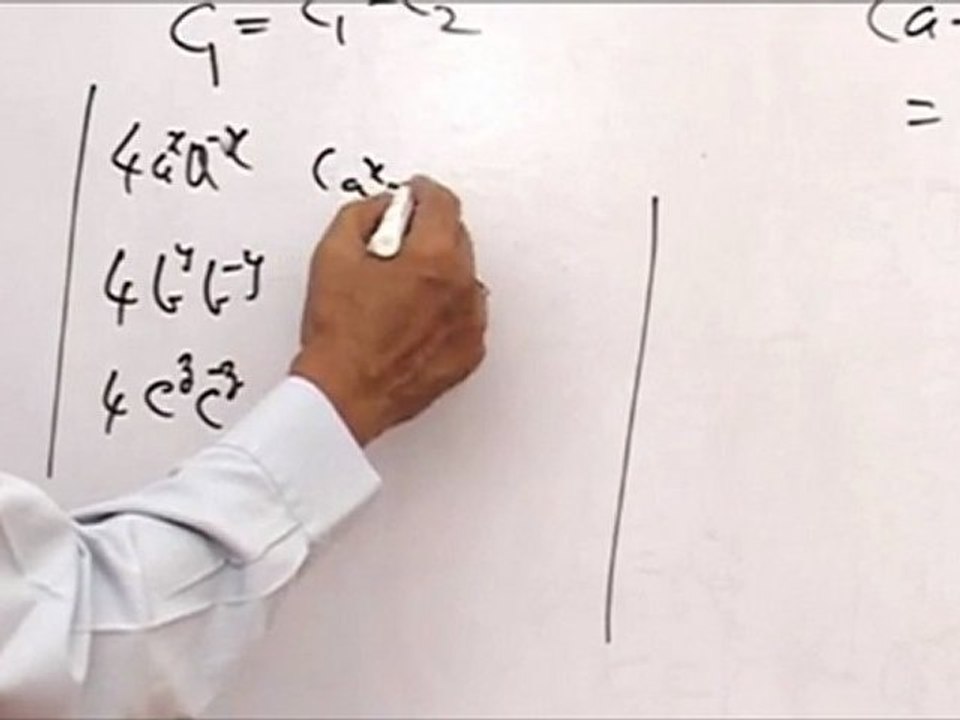 C₁ = C₁ - C₂
(a-
=
4 aˣ a⁻ˣ (aˣ
4 bʸ b⁻ʸ
4 cᶻ c⁻ᶻ